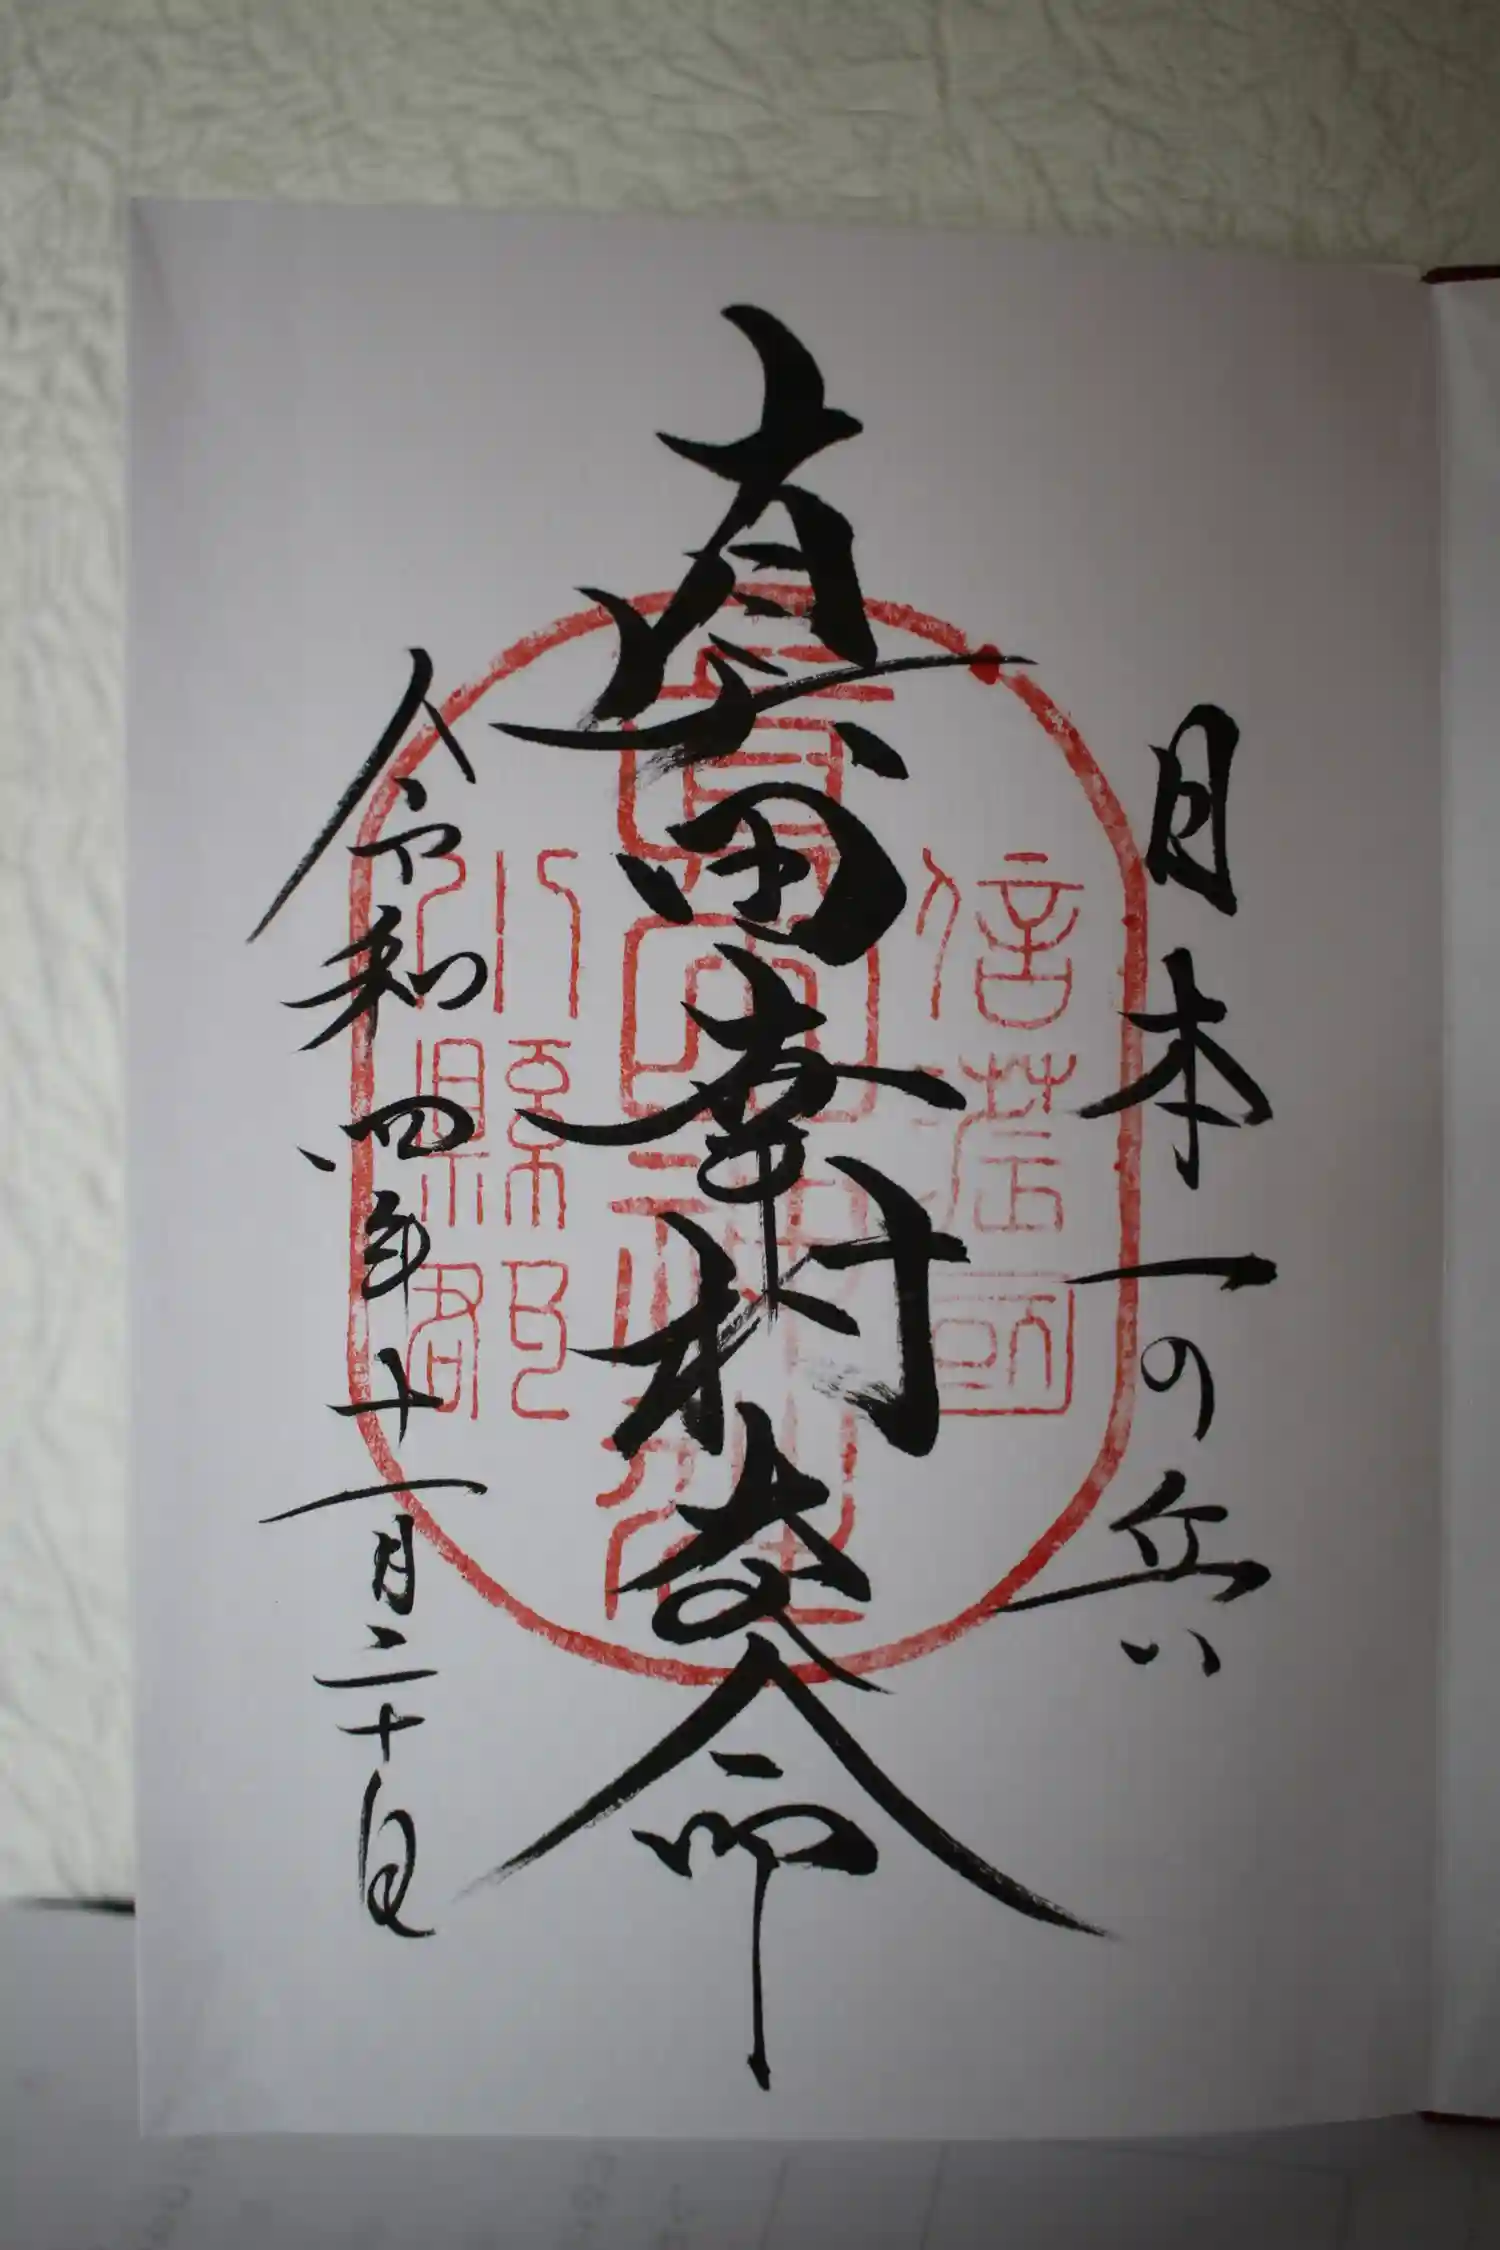 日本一の兵
真田幸村命
令和四年十一月二十日
信濃國
眞田神社
小縣郡